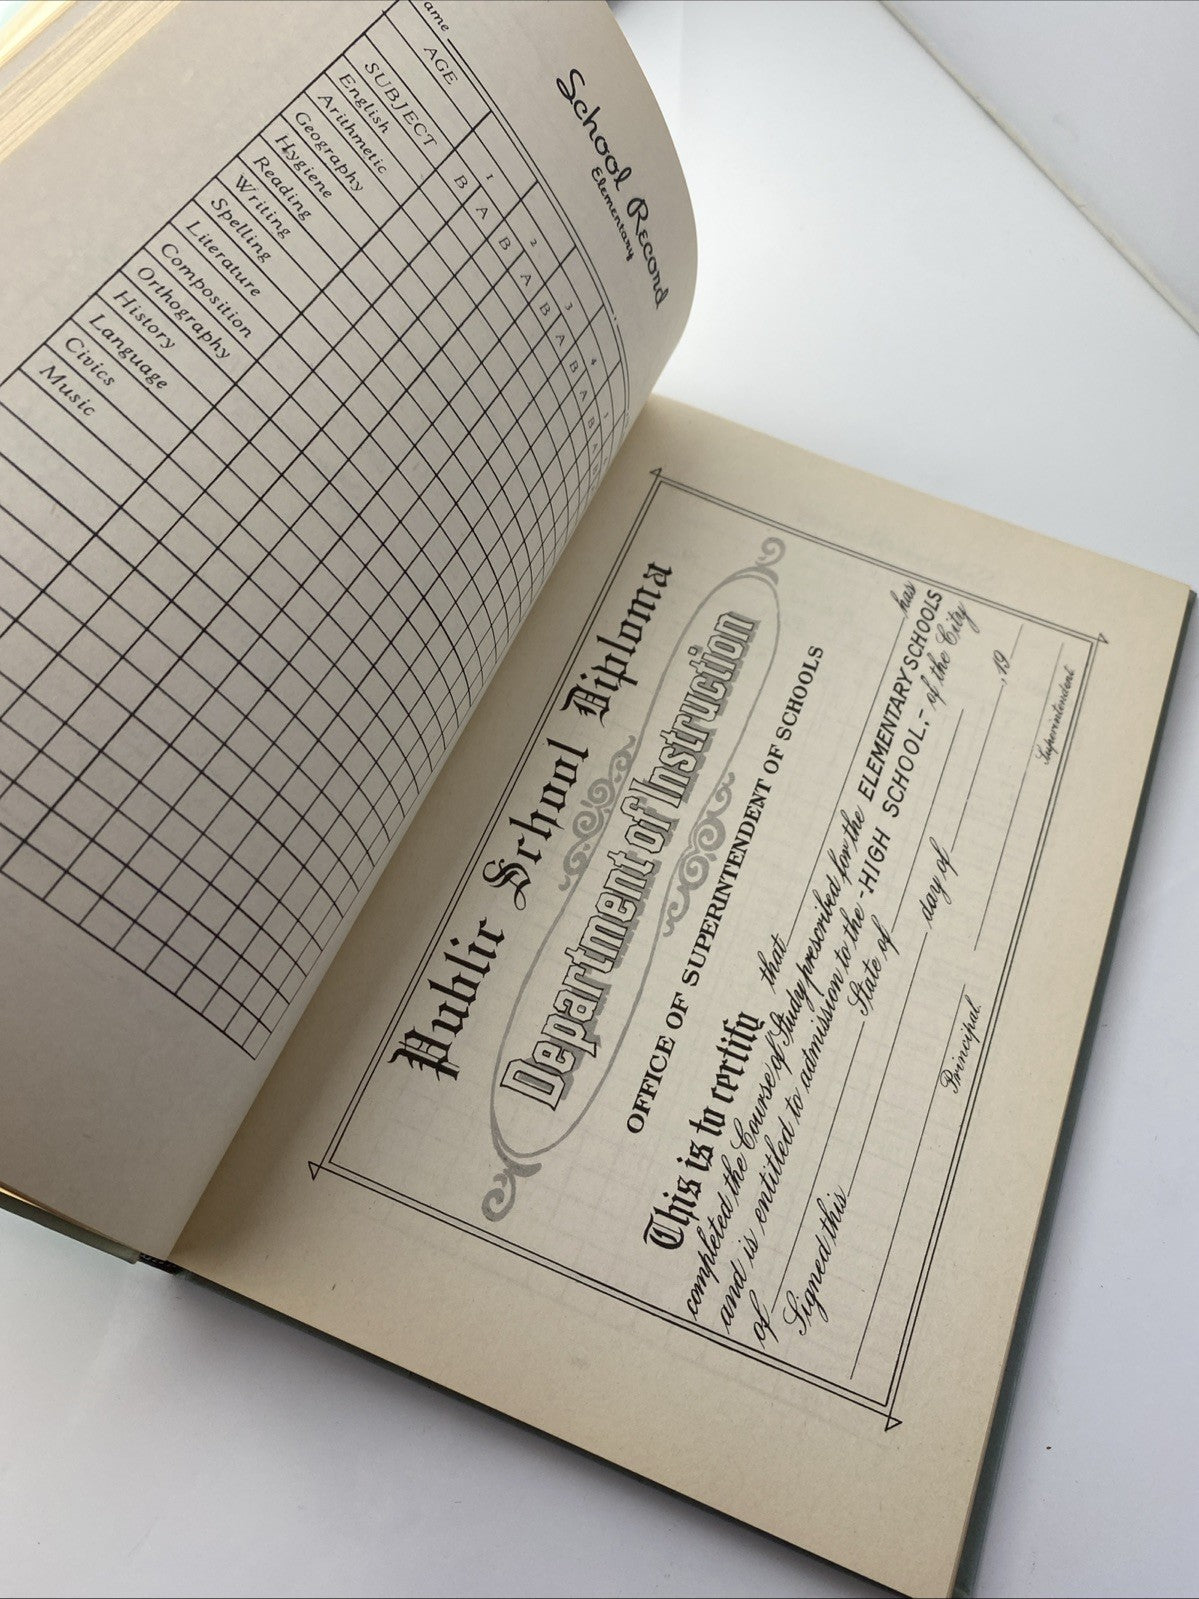 School Record
Elementary
ame
AGE
SUBJECT 1 2 3 4 1
B A B A B A B A B A B
English
Arithmetic
Geography
Hygiene
Reading
Writing
Spelling
Literature
Composition
Orthography
History
Language
Civics
Music
Public School Diploma
Department of Instruction
OFFICE OF SUPERINTENDENT OF SCHOOLS
This is to certify that has
completed the Course of Study prescribed for the ELEMENTARY SCHOOLS
and is entitled to admission to the -HIGH SCHOOL.- of the City
of State of
Signed this day of , 19
Principal. Superintendent.